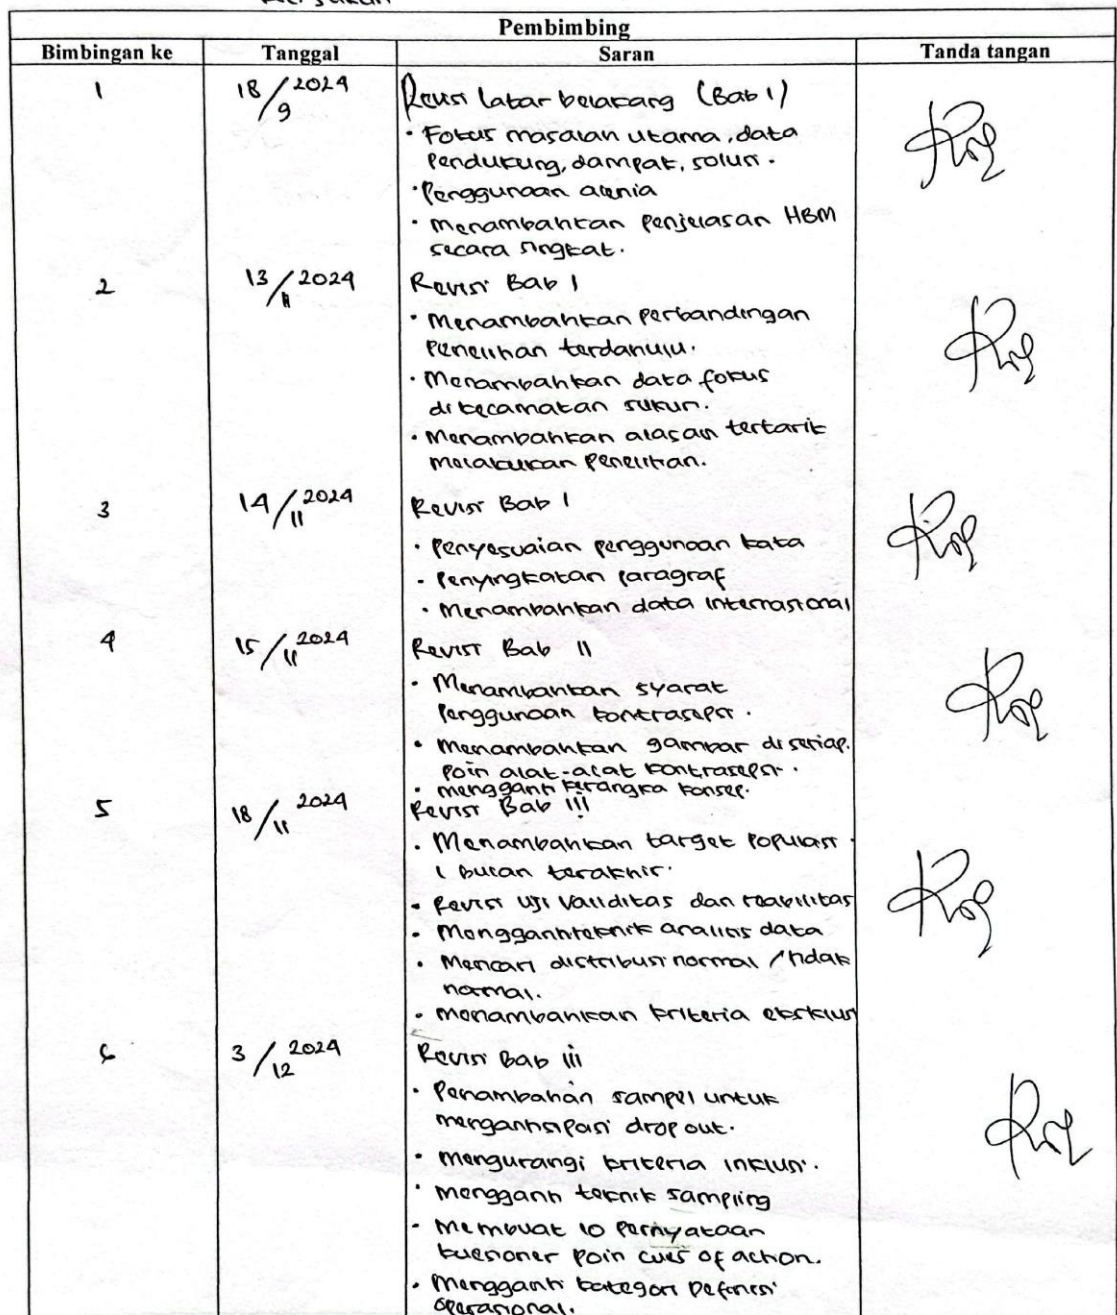 Pembimbing
Bimbingan ke Tanggal Saran Tanda tangan
1 18/9 2024 Revisi latar belakang (Bab 1)
• Fokus masalah utama, data
pendukung, dampak, solusi.
• Penggunaan alenia
• Menambahkan penjelasan HBM
secara singkat.
2 13/11 2024 Revisi Bab 1
• Menambahkan perbandingan
penelitian terdahulu.
• Menambahkan data fokus
di kecamatan sukun.
• Menambahkan alasan tertarik
melakukan penelitian.
3 14/11 2024 Revisi Bab 1
• Penyesuaian penggunaan kata
• Penyingkatan paragraf
• Menambahkan data internasional
4 15/11 2024 Revisi Bab II
• Menambahkan syarat
penggunaan kontrasepsi.
• Menambahkan gambar di setiap
poin alat-alat kontrasepsi.
• mengganti kerangka konsep.
5 18/11 2024 Revisi Bab III
• Menambahkan target populasi
1 bulan terakhir.
• Revisi uji validitas dan reabilitas
• Mengganti teknik analisis data
• Mencari distribusi normal / tidak
normal.
• Menambahkan kriteria eksklusi
6 3/12 2024 Revisi Bab III
• Penambahan sampel untuk
mengantisipasi drop out.
• Mengurangi kriteria inklusi.
• Mengganti teknik sampling
• Membuat 10 pernyataan
kuesioner poin cues of action.
• Mengganti kategori Definisi
operasional.